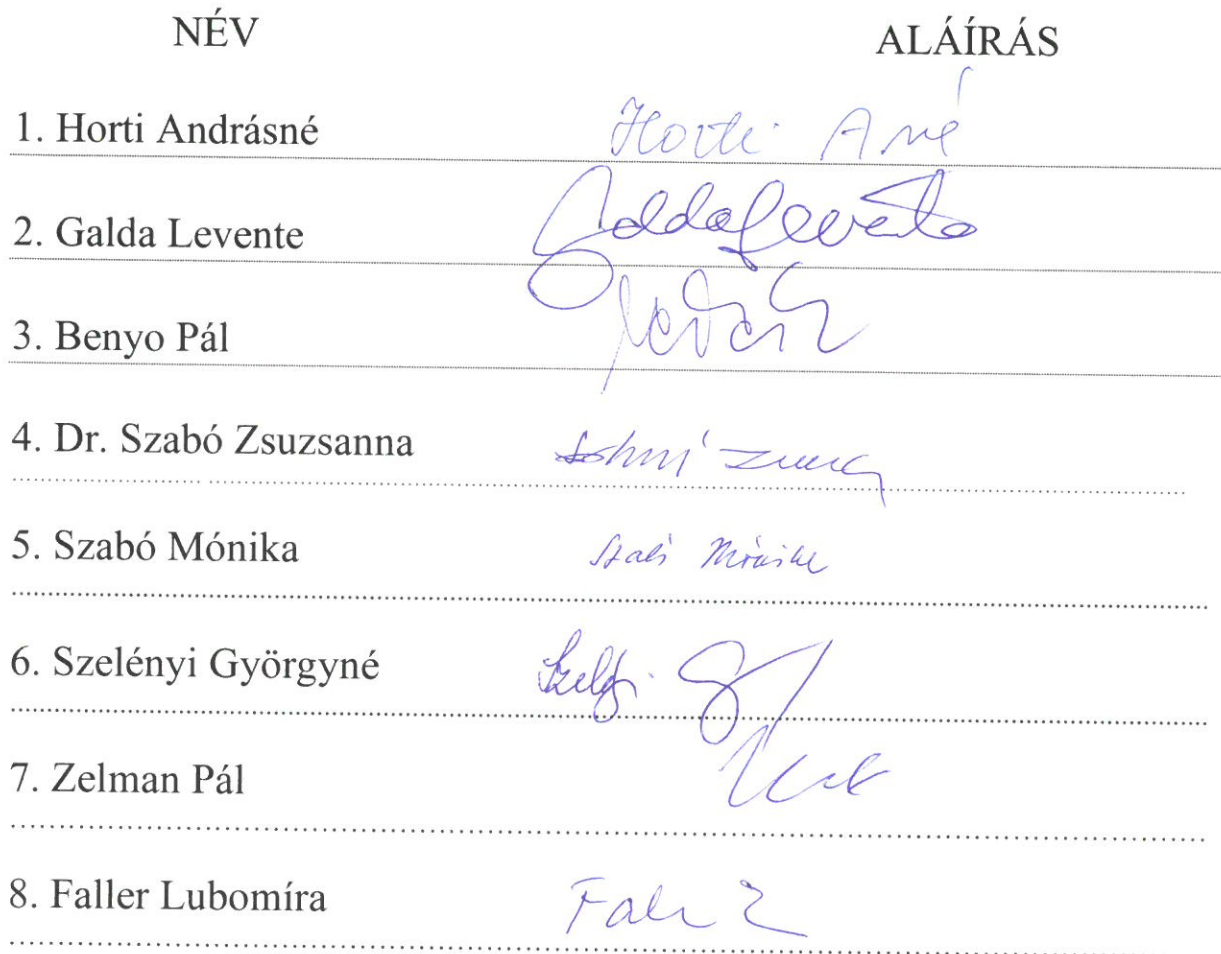 NÉV ALÁÍRÁS
1. Horti Andrásné Horti Ané
2. Galda Levente Galda Levente
3. Benyo Pál
4. Dr. Szabó Zsuzsanna
5. Szabó Mónika Szabó Mónika
6. Szelényi Györgyné
7. Zelman Pál
8. Faller Lubomíra